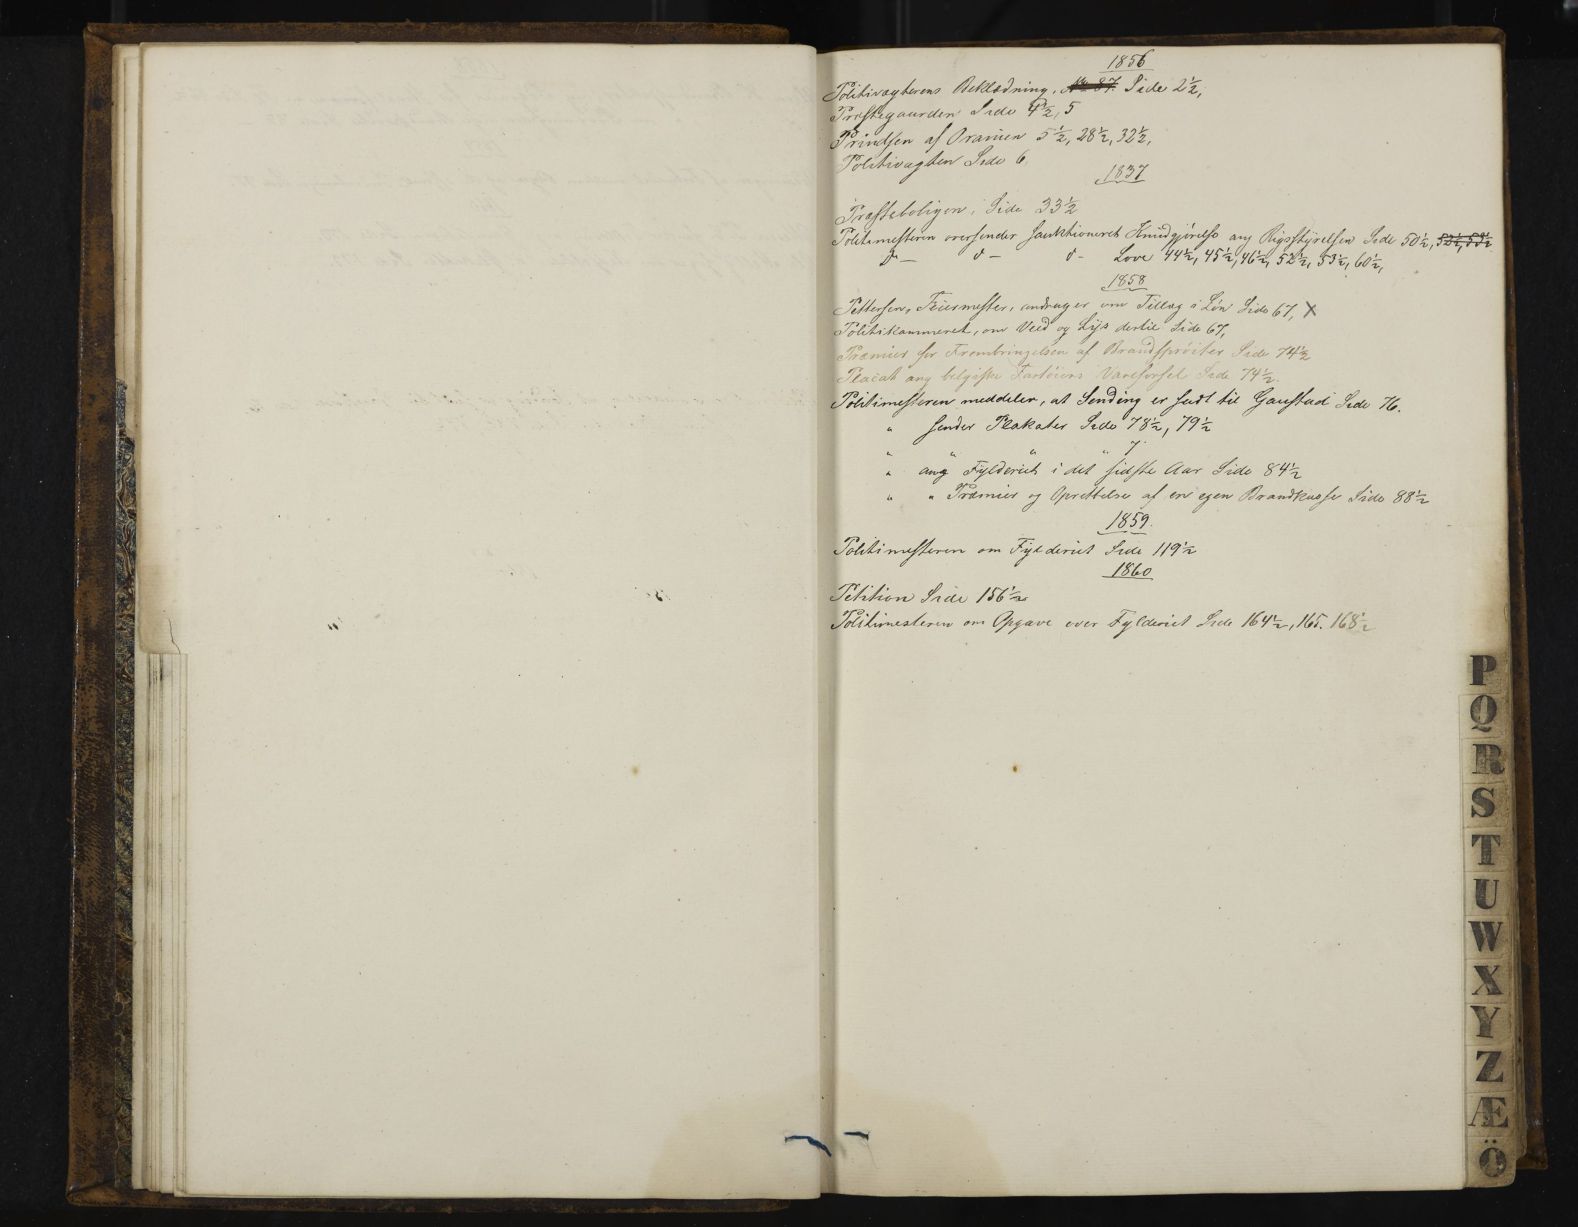 1856
Politivægterens Beklædning, No 87. Side 2½,
Præstegaarden Side 4½, 5
Prindsen af Oranien 5½, 28½, 32½,
Politivagten Side 6,
1857
Præsteboligen, Side 33½
Politimesteren oversender sanktioneret Kundgjørelse ang Rigsstyrelsen Side 50½, 52½, 53½
do— do— do- Love 44½, 45½, 46½, 52½, 53½, 60½,
1858
Pettersen, Feiermester, andrager om Tillæg i Løn Side 67, X
Politikammeret, om Veed og Lys dertil Side 67,
Præmier for Frembringelsen af Brandsprøiter Side 74½
Placat ang belgiske Fartøiers Vareførsel Side 74½.
Politimesteren meddeler, at Sending er sendt til Gaustad Side 76.
" sender Plakater Side 78½, 79½
" " " " 7.
" ang Fylderiet i det sidste Aar Side 84½
" " Præmier og Oprettelse af en egen Brandkasse Side 88½
1859.
Politimesteren om Fylderiet Side 119½
1860
Petition Side 156½
Politimesteren om Opgave over Fylderiet Side 164½, 165. 168½
P
Q
R
S
T
U
W
X
Y
Z
Æ
Ö